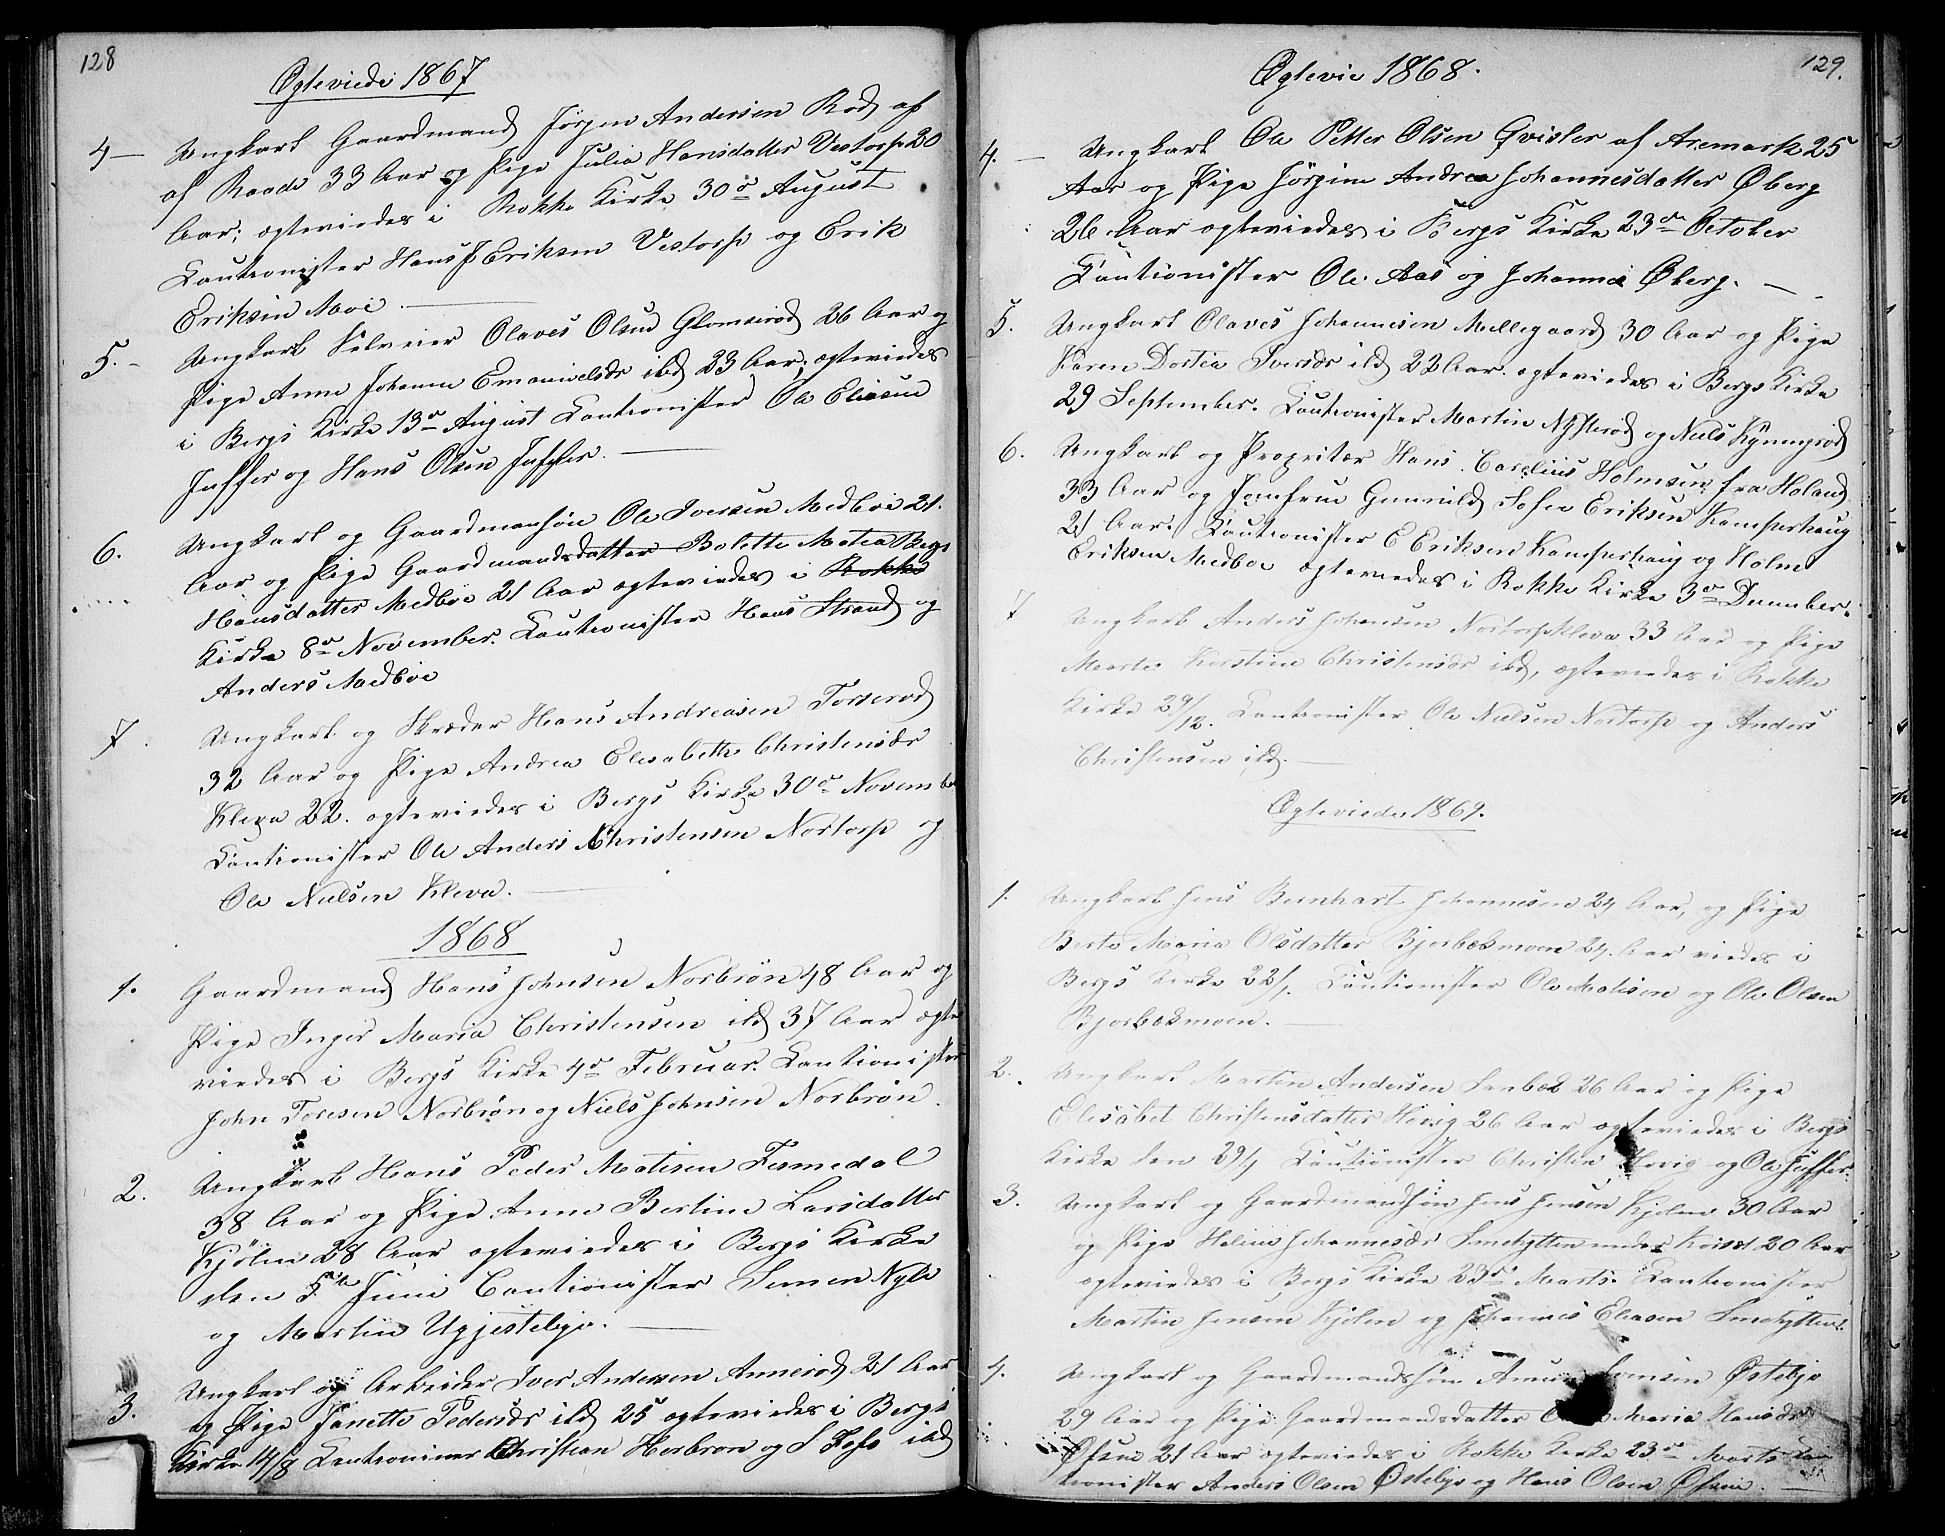 128
Ægteviede 1867
4 — Ungkarl Gaardmand Jörgen Andersen Rød af
af Raade 33 Aar og Pige Julia Hansdatter Vestorp 20
Aar; egteviedes i Rokke Kirke 30te August
Cautionister Hans J Eriksen Vestorp og Erik
Eriksen Moe
5. - Ungkarl Selveier Olaves Olsen Glomserød 26 Aar og
Pige Anne Johanne Emanuelsdr ibd 23 Aar; egteviedes
i Bergs Kirke 13de August Cautionister Ole Eliasen
Juffer og Hans Olsen Juffer.
6. Ungkarl og Gaardmansøn Ole Iversen Medböe 21.
Aar og Pige Gaardmandsdatter Bolette Matea Bergs
Hansdatter Medböe 21 Aar egteviedes i Rokke
Kirke 8de November. Cautionister Hans Strand og
Anders Medböe
7. Ungkarl og Skræder Hans Andreasen Torserød
32 Aar og Pige Andrea Elisabeth Christensdr
Kleva 22. egteviedes i Bergs Kirke 30te Novembe
Cautionister Ole Anders Christensen Nortorp og
Ole Nielsen Kleva.
1868
1. Gaardmand Hans Johnsen Norbrön 48 Aar og
Pige Inger Maria Christensen ibd 37 Aar egte
viedes i Bergs Kirke 4de Februar. Cautionister
John Toresen Norbrön og Niels Johnsen Norbrön.
2. Ungkarl Hans Peder Matisen Fesmedal
38 Aar og Pige Anne Bertine Larsdatter
Kjölen 28 Aar egteviedes i Bergs Kirke
den 5te Juni Cautionister Simen Nyle
og Martin Ugjestebye.
3. Ungkarl og Arbeider Iver Andersen Annerød 21 Aar
og Pige Janette Pedersdr ibd 25 egteviedes i Bergs
Kirke 14/8 Cautioniner Christian Herbron og S Foss ibd
129.
Ægtevie 1868.
4. — Ungkarl Ole Petter Olsen Qvisler af Aremark 25
Aar og Pige Jörgine Andrea Johannesdatter Øberg
26 Aar egteviedes i Bergs Kirke 23de October
Cautionister Ole Aas og Johannes Øberg. —
5. Ungkarl Olaves Johannesen Mellegaard 30 Aar og Pige
Karen Dortea Iversdr ibd 22 Aar. egteviedes i Bergs Kirke
29 September. Cautionister Martin Nÿsterød og Niels Kynungrød
6. Ungkarl og Propritær Hans Carelius Holmsen fra Høland
33 Aar og Jomfrue Gunnild Sofie Eriksen Kamperhaug
21 Aar. Cautionister E Eriksen Kamperhaug og Holm
Eriksen Medböe egteviedes i Rokke Kirke 3de December.
7 Ungkarl Anders Johansen Nortorp Kleva 33 Aar og Pige
Marte Kerstine Christensdr ibd, egteviedes i Rokke
Kirke 29/12. Cautionister Ole Nielsen Nortorp og Anders
Christensen ibd. —
Ægteviede 1869.
1. Ungkarl Jens Bernhart Johannesen 24 Aar, og Pige
Berte Maria Olsdatter Bjorbekmoen 24. Aar viedes i
Bergs Kirke 22/1. Cautionister Ole Matisen og Ole Olsen
Bjorbekmoen. —
2. Ungkarl Martin Andersen Lenbek 26 Aar og Pige
Elisabet Christensdatter Hervig 26 Aar egteviedes i Bergs
Kirke den 29/1 Cautionister Christen Hervig og Ole Juffer.
3. Ungkarl og Gaardmandsøn Jens Jensen Kjölen 30 Aar
og Pige Heline Johannesdr Smehytten under 20 Aar
egteviedes i Bergs Kirke 23de Marts. Cautionister
Martin Jensen Kjölen og Johannes Eliasen Smehytten
4. Ungkarl og Gaardmandssøn Østebye
29 Aar og Pige Gaardmandsdatter Maria Hansdr
21 Aar egteviedes i Rokke Kirke 23de Marts Cau
tionister Anders Olsen Østebye og Hans Olsen